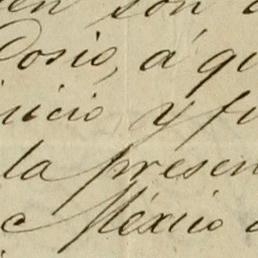 en son
Dosio, á qu
uicio y fu
la presen
México